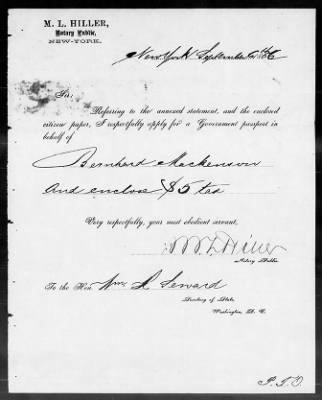 M. L. HILLER,
Notary Public,
NEW-YORK.
New York September
Sir:
Referring to the annexed statement, and the enclosed
citizen paper, I respectfully apply for a Government passport in
behalf of
Bernhard Mackenson
And enclose $5 tax
Very respectfully, your most obedient servant,
M L Hiller
Notary Public
To the Hon. Wm H Seward
Secretary of State,
Washington, D. C.
P. T. O.